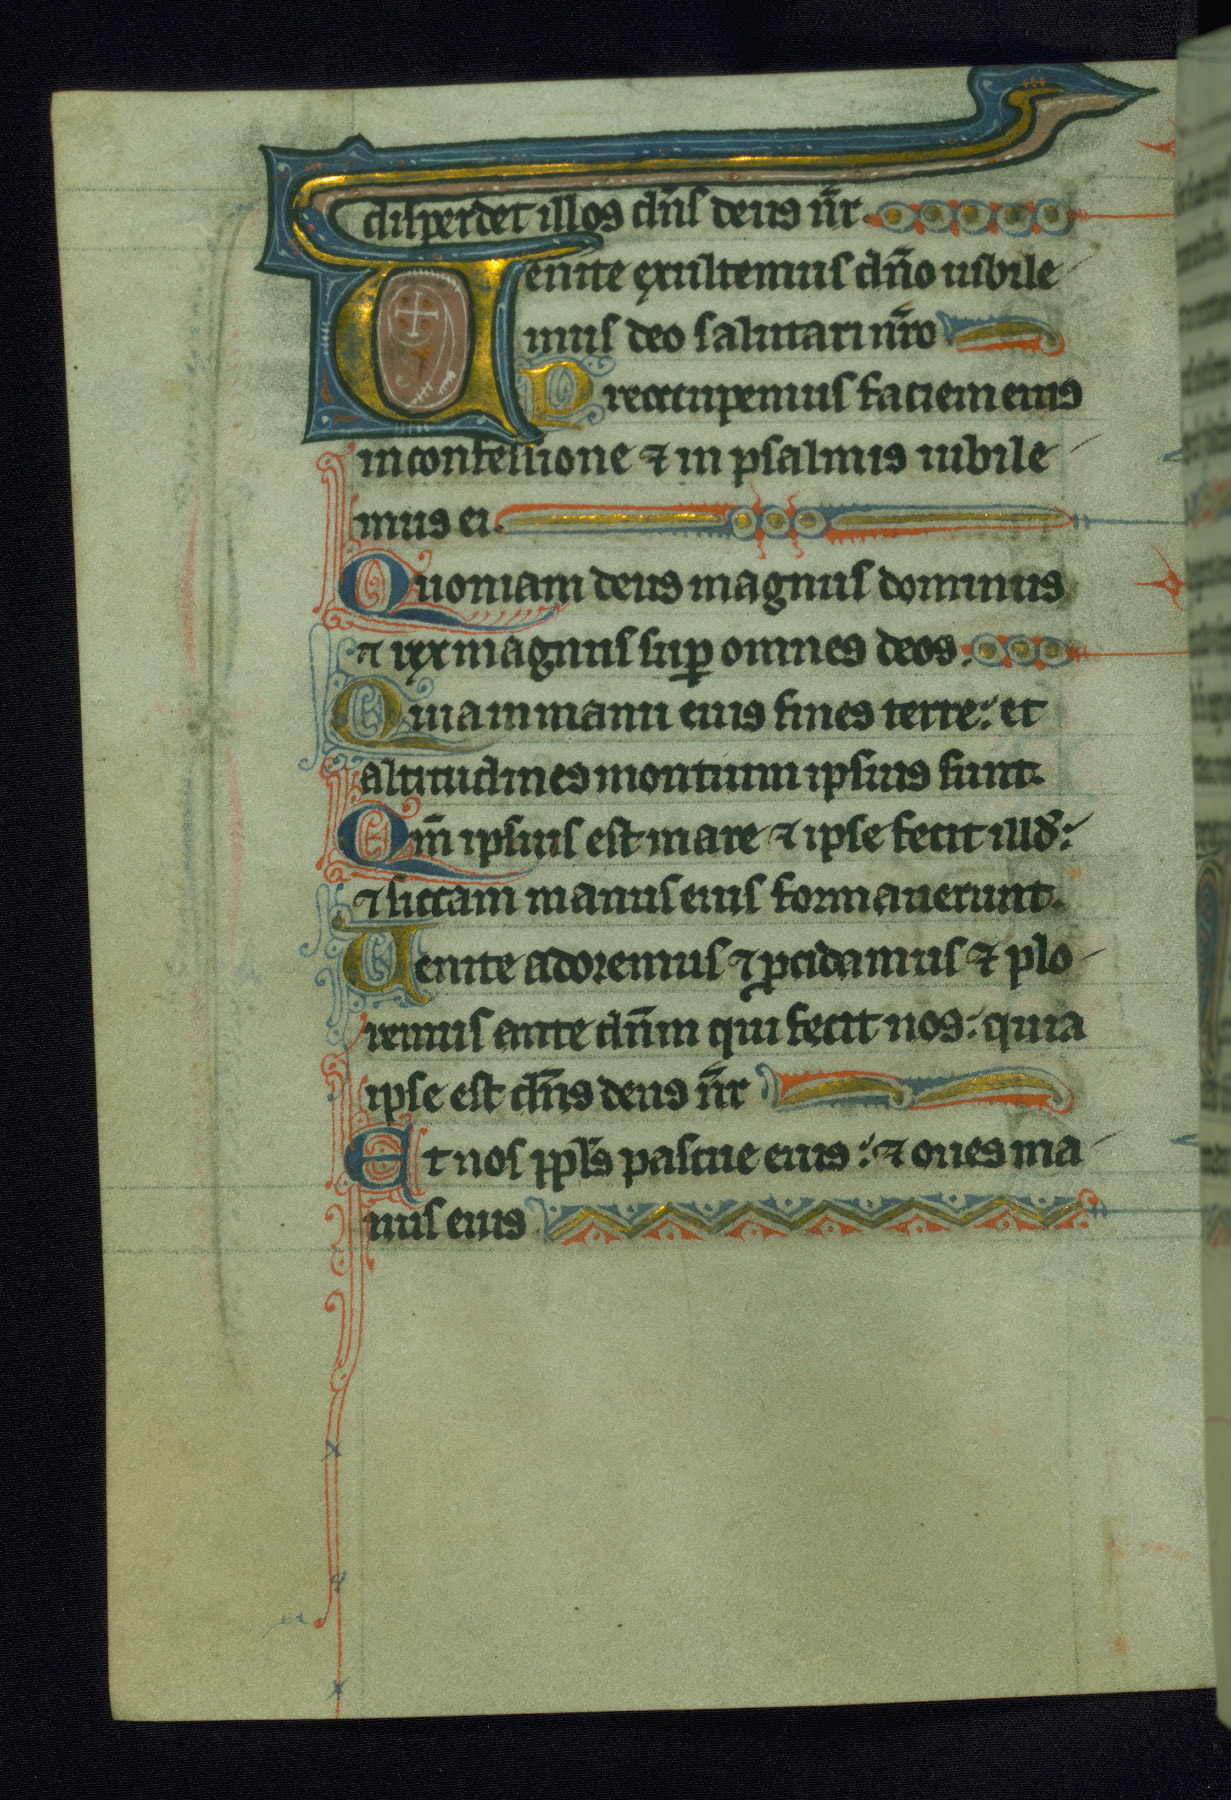 disperdet illos dn̄s deus nr̄.
Venite exultemus dn̄o iubile
mus deo salutari nr̄o
Preoccupemus faciem eius
in confessione ⁊ in psalmis iubile
mus ei.
Quoniam deus magnus dominus
⁊ rex magnus suꝑ omnes deos.
Quia in manu eius fines terre: et
altitudines montium ipsius sunt.
Qm̄ ipsius est mare ⁊ ipse fecit illd̄:
⁊ siccam manus eius formauerunt.
Venite adoremus ⁊ ꝓcidamus ⁊ plo
remus ante dn̄m qui fecit nos: quia
ipse est dn̄s deus nr̄
Et nos ppl̄s pascue eius: ⁊ oues ma
nus eius